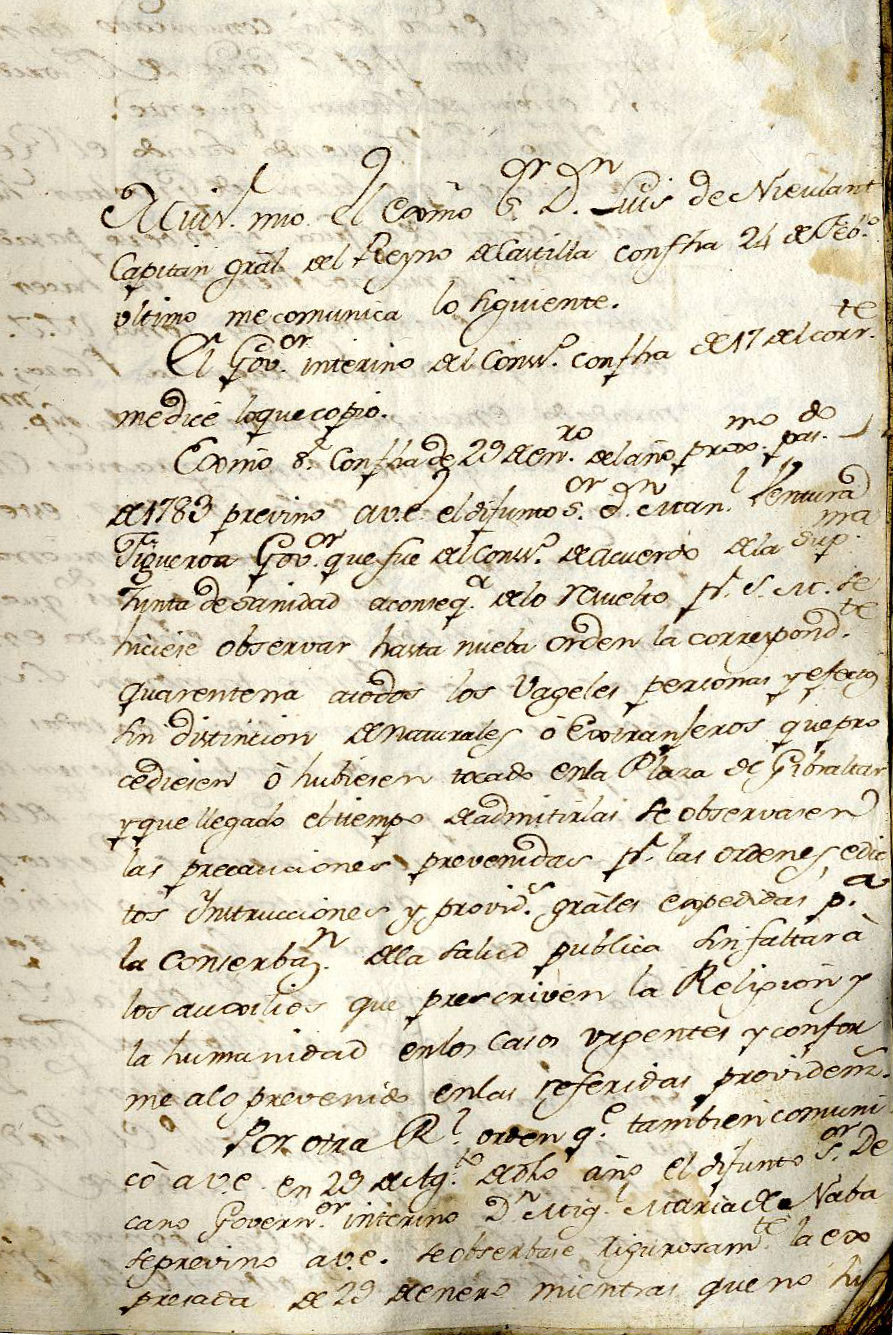 mio. El Exmō Sor. Dn. Luis de Nieulant
Capitan grāl. del Reyno de Castilla con fha 24 de Febo.
ultimo me comunica lo siguiente.
El Govor. interino del Consō. con fha de 17 del corrte.
me dice lo que copio.
Exmō Sr. Con fha de 29 de Enro. del año proxmo. pasdo.
de 1783 previno a v.e. el difunto Sor. Dn. Manl. Ventura
Figueroa Govor. que fue del Consō. de acuerdo de la Supma.
Junta de Sanidad a conseqa. de lo resuelto pr. S. M. se
hiciese observar hasta nueba orden la correspondte.
quarentena a todos los Vageles personas y efectos
sin distincion de naturales ó Extranjeros que pro
cediesen ó hubiesen tocado en la Plaza de Gibraltar
y que llegado el tiempo de admitirlas se observasen
las precauciones prevenidas pr. las ordenes, edic
tos Instrucciones y provids. grāles expedidas pa.
la conserbazn. de la salud publica sin faltar à
los auxilios que prescriven la Religion y
la humanidad en los casos urgentes y confor
me a lo prevenido en las referidas providens̄.
Por otra Rl. orden qe. tambien comuni
cò a v.e. en 29 de Agto. de dho año el difunto Sor. De
cano Governor. interino Dn. Migl. Maria de Naba
se previno a v.e. se observase rigurosamte. la ex
presada de 29 de enero mientras que no hu